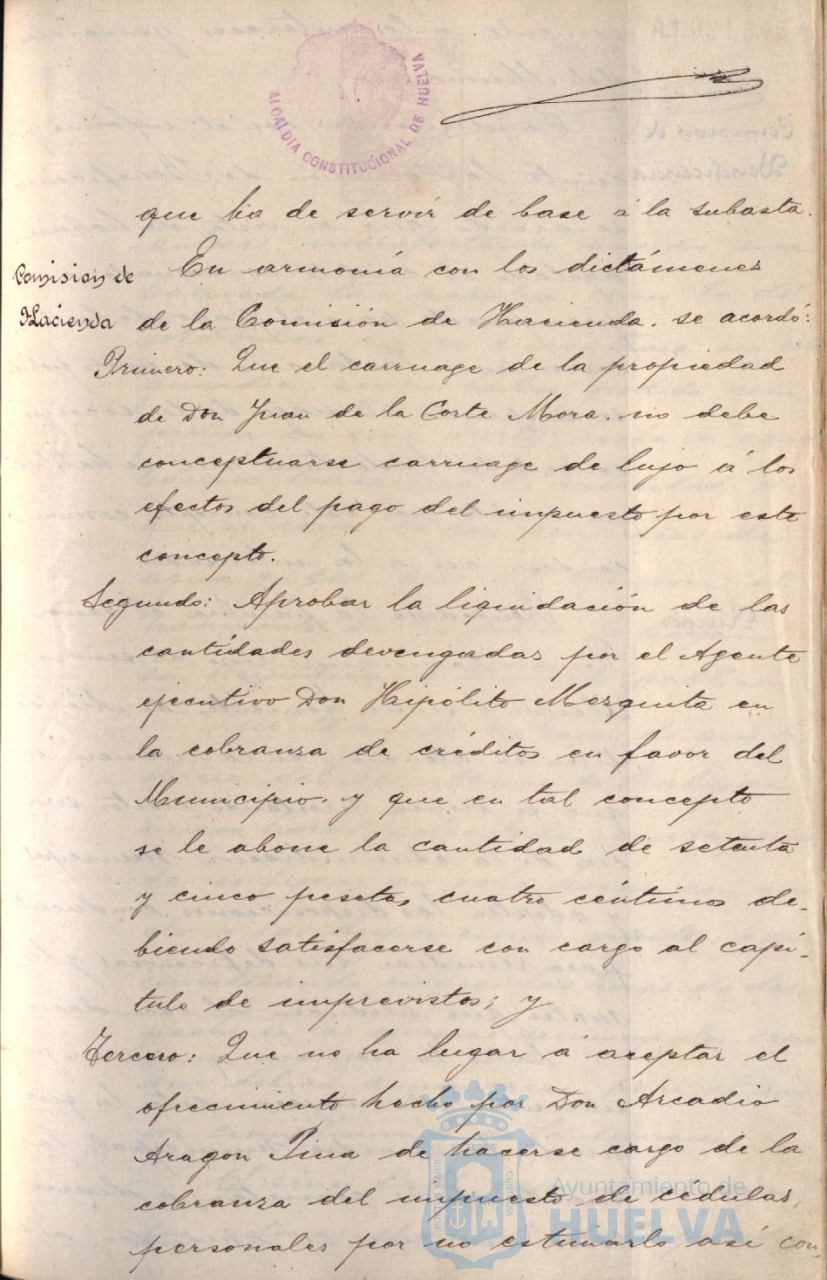 ALCALDÍA CONSTITUCIONAL DE HUELVA
que ha de servir de base á la subasta.
Comision de
Hacienda
En armonía con los dictámenes
de la Comisión de Hacienda. se acordó:
Primero: Que el carruage de la propiedad
de Don Juan de la Corte Mora. no debe
conceptuarse carruage de lujo á los
efectos del pago del impuesto por este
concepto.
Segundo: Aprobar la liquidación de las
cantidades devengadas por el Agente
ejecutivo Don Hipólito Mezquita en
la cobranza de créditos en favor del
Municipio. y que en tal concepto
se le abone la cantidad de setenta
y cinco pesetas cuatro céntimos de-
biendo satisfacerse con cargo al capí-
tulo de imprevistos; y
Tercero: Que no ha lugar á aceptar el
ofrecimiento hecho por Don Arcadio
Aragon Pina de hacerse cargo de la
cobranza del impuesto de cédulas
personales por no estimarlo así con-
Ayuntamiento de
HUELVA